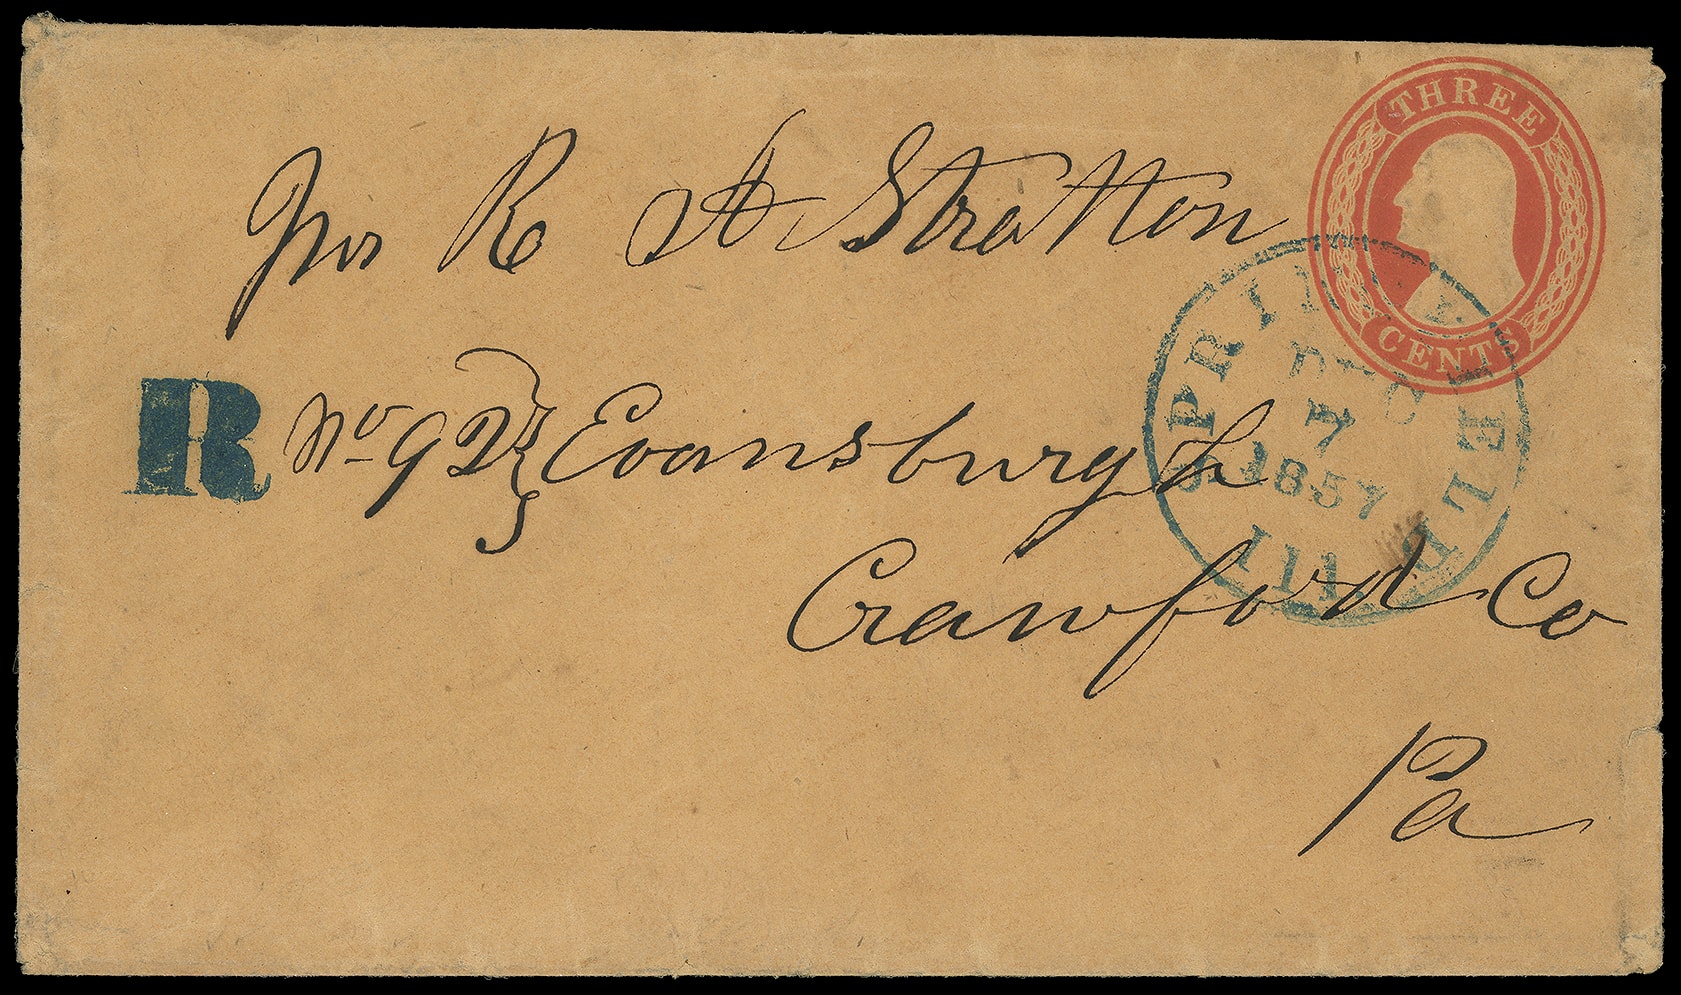 THREE
CENTS
SPRINGFIELD
DEC
7
1857
Ill
R A Stratton
R No 92 Evansburgh
Crawford Co
Pa